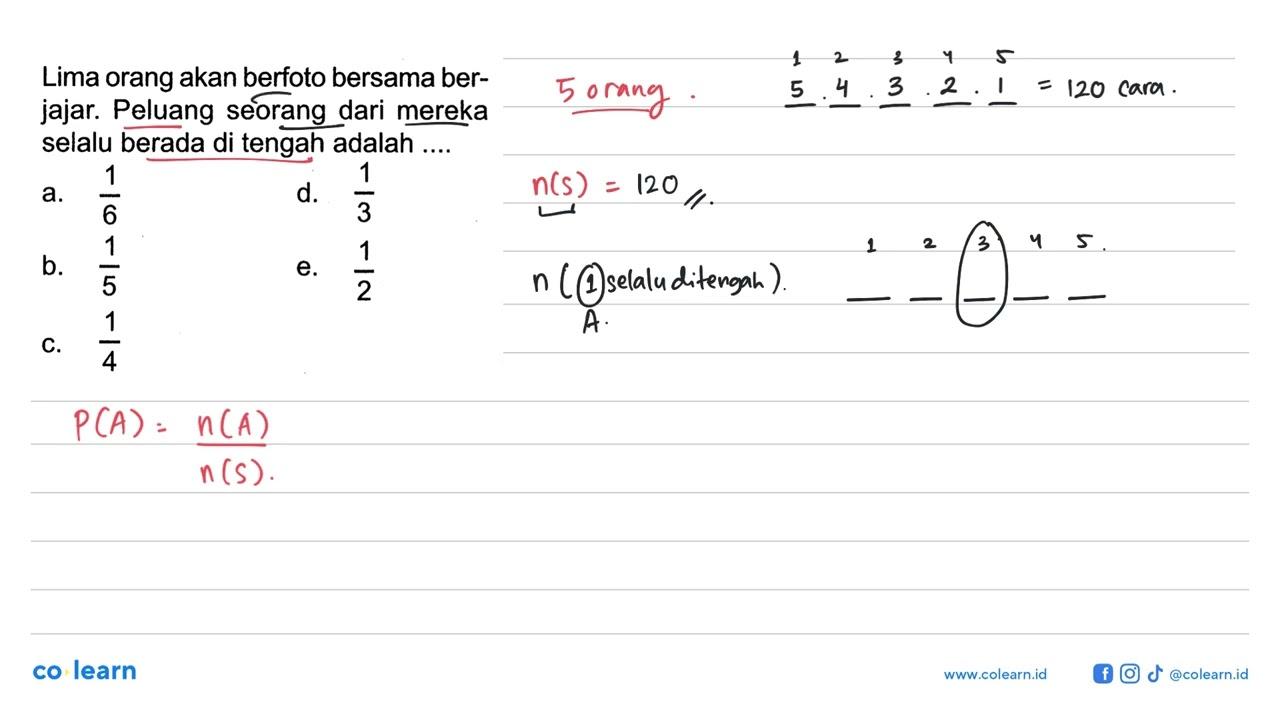 Lima orang akan berfoto bersama ber-
jajar. Peluang seorang dari mereka
selalu berada di tengah adalah ....
a. 1/6
d. 1/3
b. 1/5
e. 1/2
c. 1/4
5 orang.
1 2 3 4 5
5 . 4 . 3 . 2 . 1 = 120 cara.
n(s) = 120 //.
n (1 selalu ditengah).
A.
1 2 3 4 5.
P(A) = n(A)
n(s).
co learn
www.colearn.id
@colearn.id